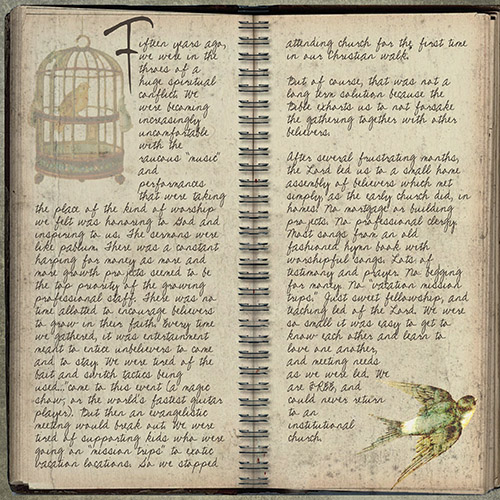 Fifteen years ago,
we were in the
throes of a
huge spiritual
conflict. We
were becoming
increasingly
uncomfortable
with the
raucous "music"
and
performances
that were taking
the place of the kind of worship
we felt was honoring to God and
inspiring to us. The sermons were
like pablum. There was a constant
harping for money as more and
more growth projects seemed to be
the top priority of the growing
professional staff. There was no
time allotted to encourage believers
to grow in their faith. Every time
we gathered, it was entertainment
meant to entice unbelievers to come
and to stay. We were tired of the
bait and switch tactics being
used..."come to this event (a magic
show, or the world's fastest guitar
player). But then an evangelistic
meeting would break out. We were
tired of supporting kids who were
going on "mission trips" to exotic
vacation locations. So we stopped
attending church for the first time
in our Christian walk.
But of course, that was not a
long term solution because the
Bible exhorts us to not forsake
the gathering together with other
believers.
After several frustrating months,
the Lord led us to a small home
assembly of believers which met
simply, as the early church did, in
homes! No mortgage or building
projects. No professional clergy.
Most songs from an old
fashioned hymn book with
worshipful songs. Lots of
testimony and prayer. No begging
for money. No "vacation mission
trips." Just sweet fellowship, and
teaching led of the Lord. We were
so small it was easy to get to
know each other and learn to
love one another,
and meeting needs
as we were led. We
are FREE, and
could never return
to an
institutional
church.